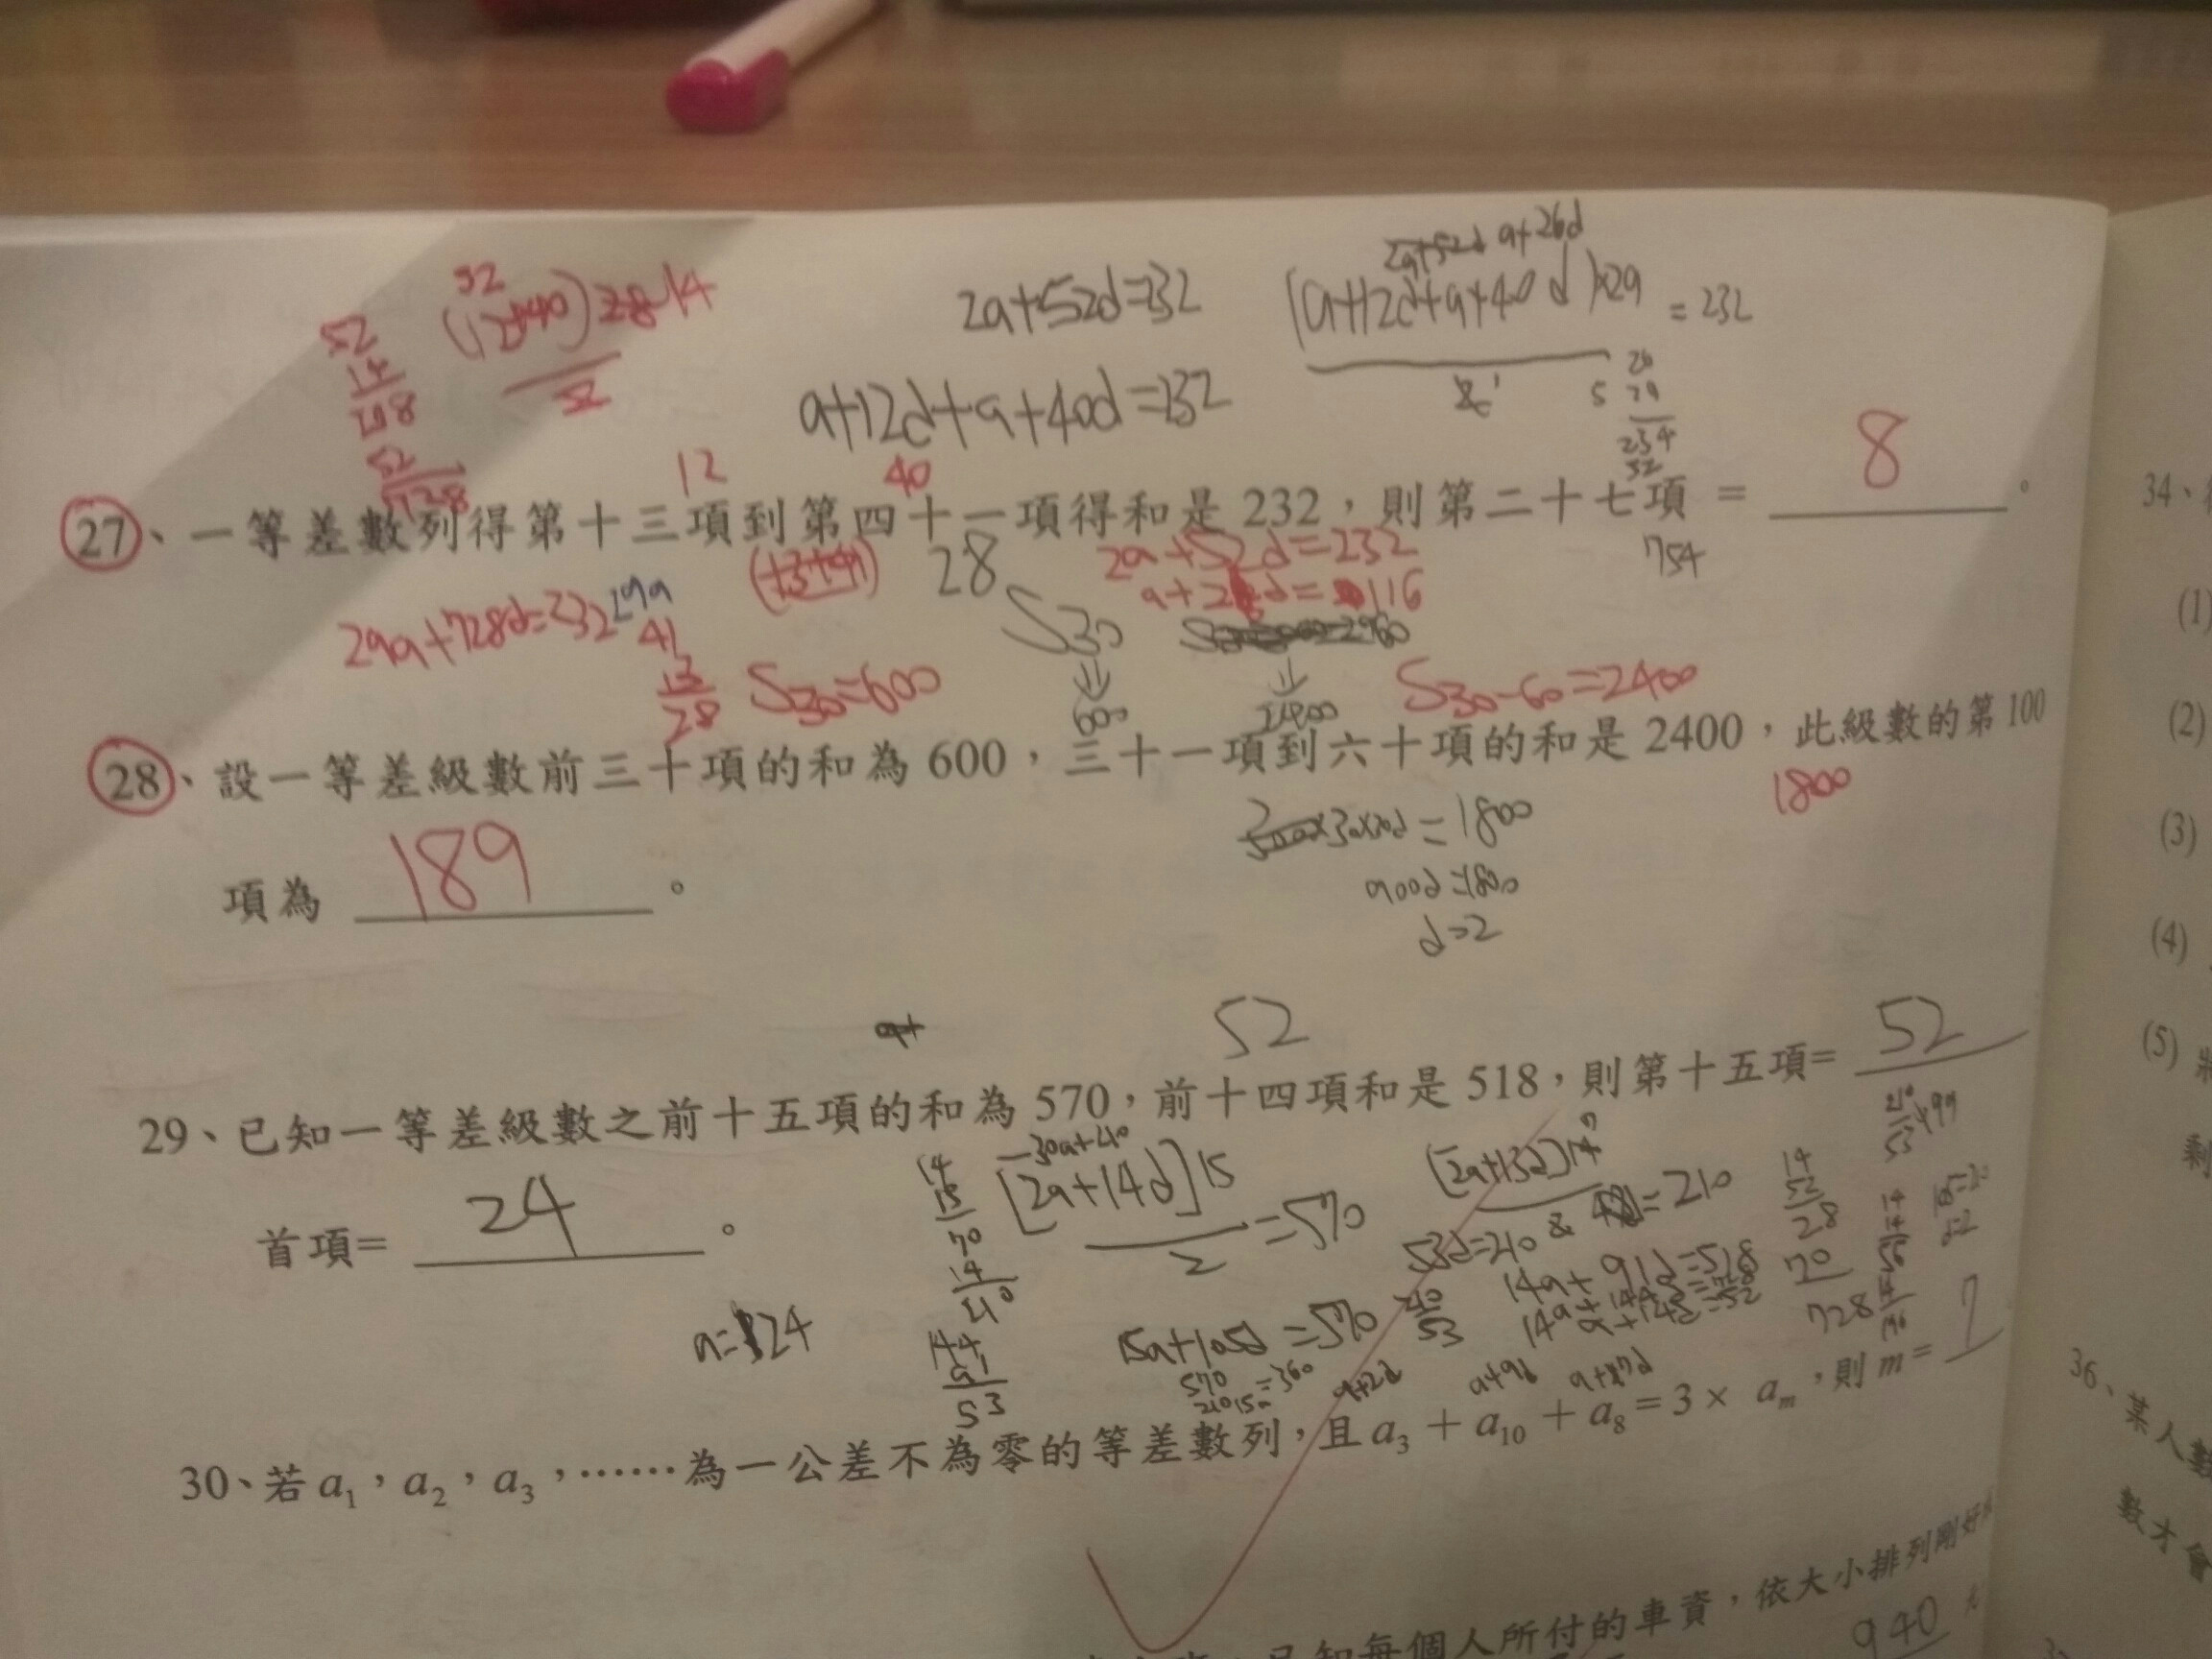 2a+52d a+26d
52 (12+40)28 14
2a+52d=232
(a+12d+a+40d)×29 = 232
52
14
52
a+12d+a+40d=232
26
29
234
52
754
12
40
27、一等差數列得第十三項到第四十一項得和是 232，則第二十七項 = 8。
(13+41) 28
2a+52d=232
29a+728d=232
a+26d=116
S30
41
13
28
S30=600
600
2400
S30-60=2400
28、設一等差級數前三十項的和為 600，三十一項到六十項的和是 2400，此級數的第 100
1800
項為 189。
=1800
900d=1800
d=2
52
29、已知一等差級數之前十五項的和為 570，前十四項和是 518，則第十五項= 52
首項= 24。
[2a+14d]15
2
=570
[2a+13d]14
=210
53d=210
14a+91d=518
a+14d=52
a=24
15a+105d=570
14
15
70
14
210
144
91
53
14
52
28
70
728
a+2d
a+9d
a+7d
30、若 a1，a2，a3，……為一公差不為零的等差數列，且 a3 + a10 + a8 = 3 × am，則 m = 7
已知每個人所付的車資，依大小排列剛好
940 元
34、
(1)
(2)
(3)
(4)
(5)
剩
36、某人
數才會